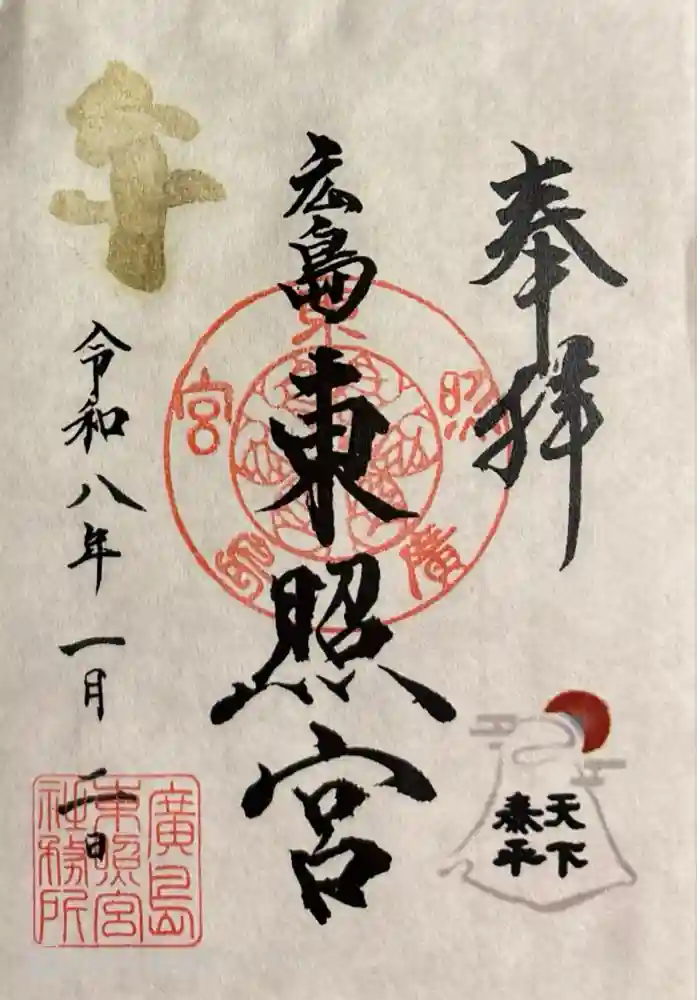 奉拝
天下
泰平
広島東照宮
廣島東照宮
午
令和八年一月二日
廣島
東照宮
社務所